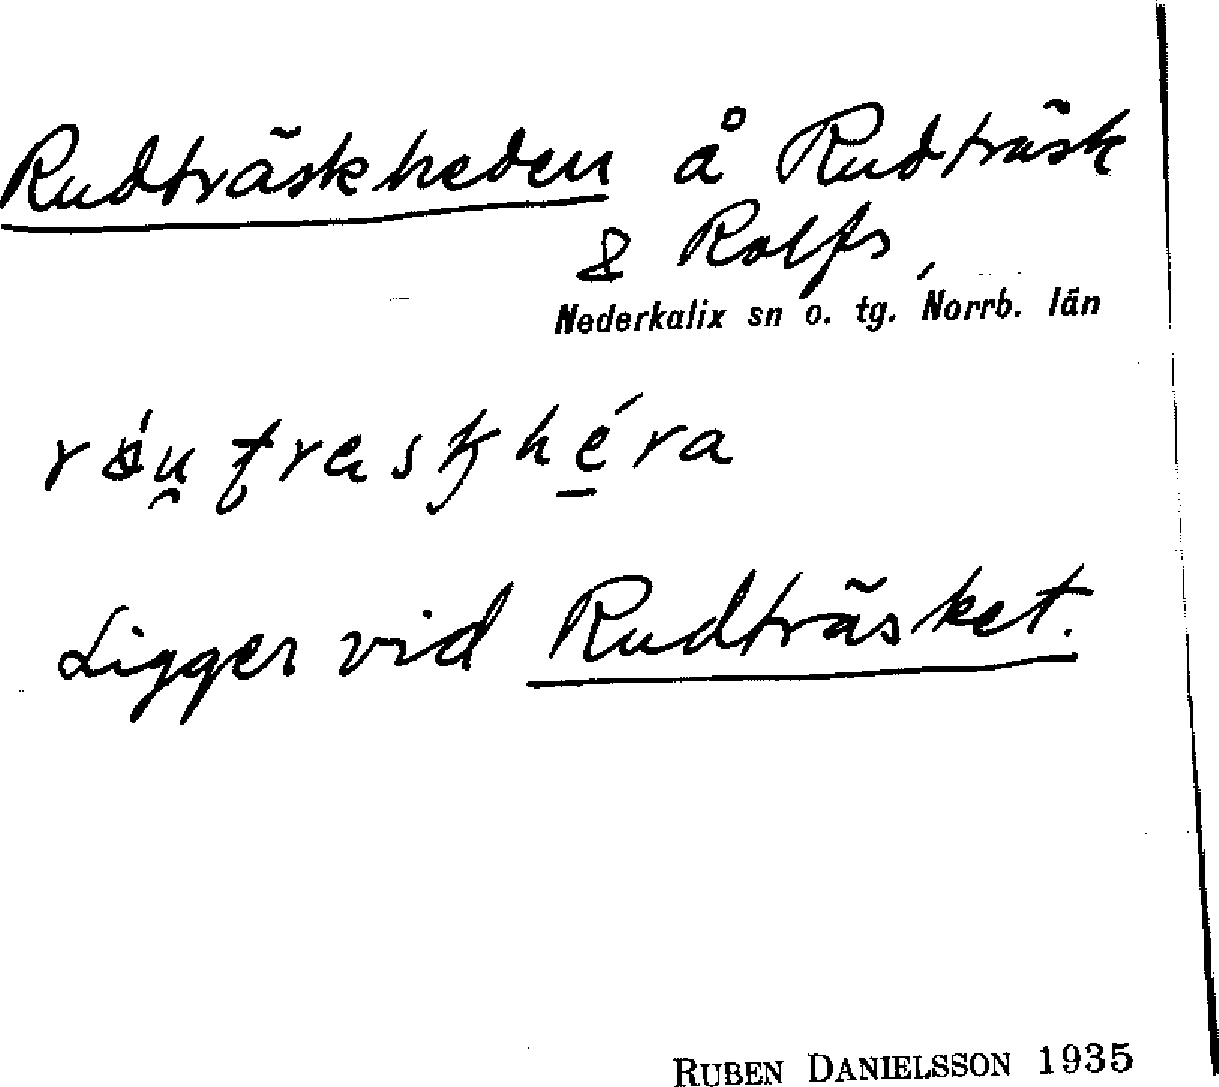 Rudträskheden å Rudträsk
& Rolfs,
Nederkalix sn o. tg. Norrb. län
Ligger vid Rudträsket.
RUBEN DANIELSSON 1935